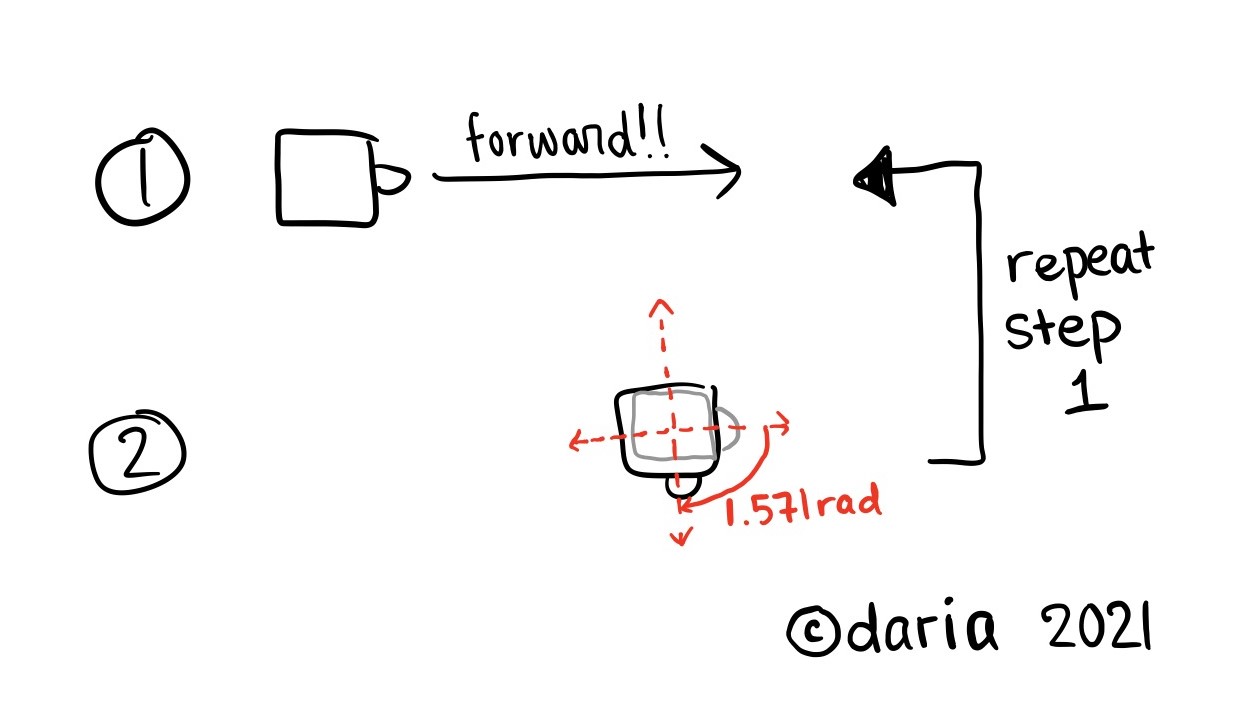 1
forward!!
repeat
step
1
2
1.571rad
©daria 2021